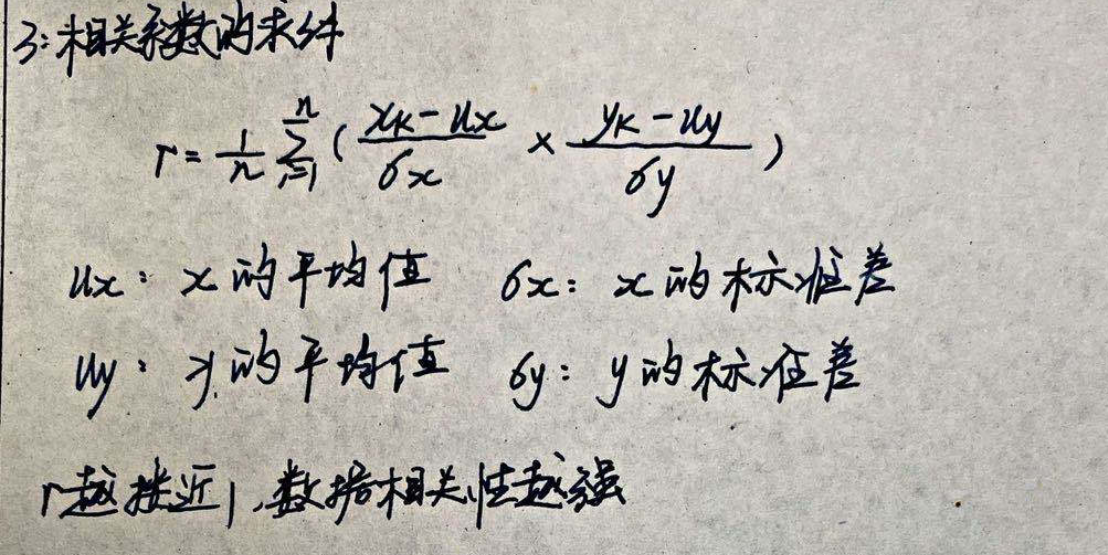 3:相关系数的求解
r = 1/n Σ_{i=1}^{n} ( (xₖ - uₓ)/σₓ × (yₖ - u_y)/σ_y )
uₓ: x 的平均值 σₓ: x 的标准差
u_y: y 的平均值 σ_y: y 的标准差
r越接近1,数据相关性越强